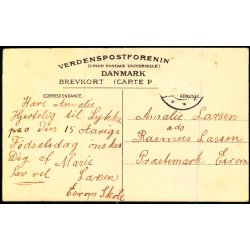 VERDENSPOSTFORENIN
(UNION POSTALE UNIVERSELLE)
DANMARK
BREVKORT (CARTE P
CORRESPONDANCE.
ADRESSE.
Kære Amalie
Hjertelig til Lykke
paa din 15 Aarige
Fødselsdag ønskes
Dig af Marie
Lev vel Larsen
Esrom Skole
Amalie Larsen
ads
Rasmus Larsen
Præstemark Esrom